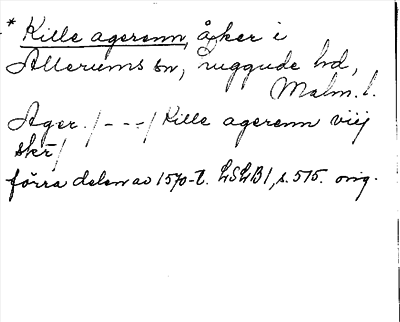 * Kille agerenn, åker i
Allerums sn, Luggude hd,
Malm. l.
Ager. /---/ Kille agerenn viij
skr/
förra delen av 1570-t. LSLB1, s. 575. orig.